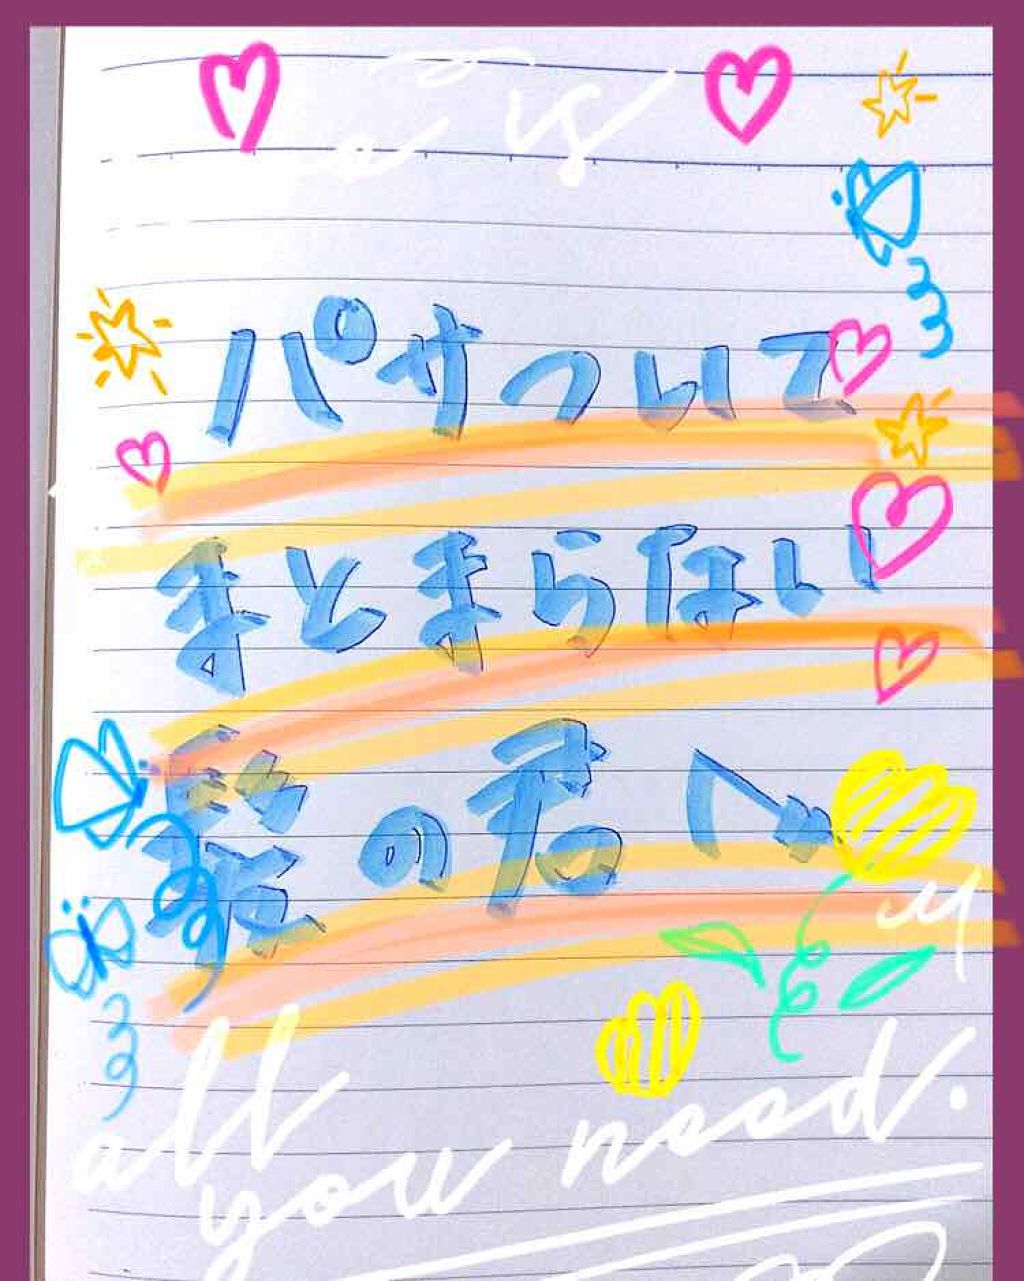 is
パサついて
まとまらない
髪の君へ
all
you need.